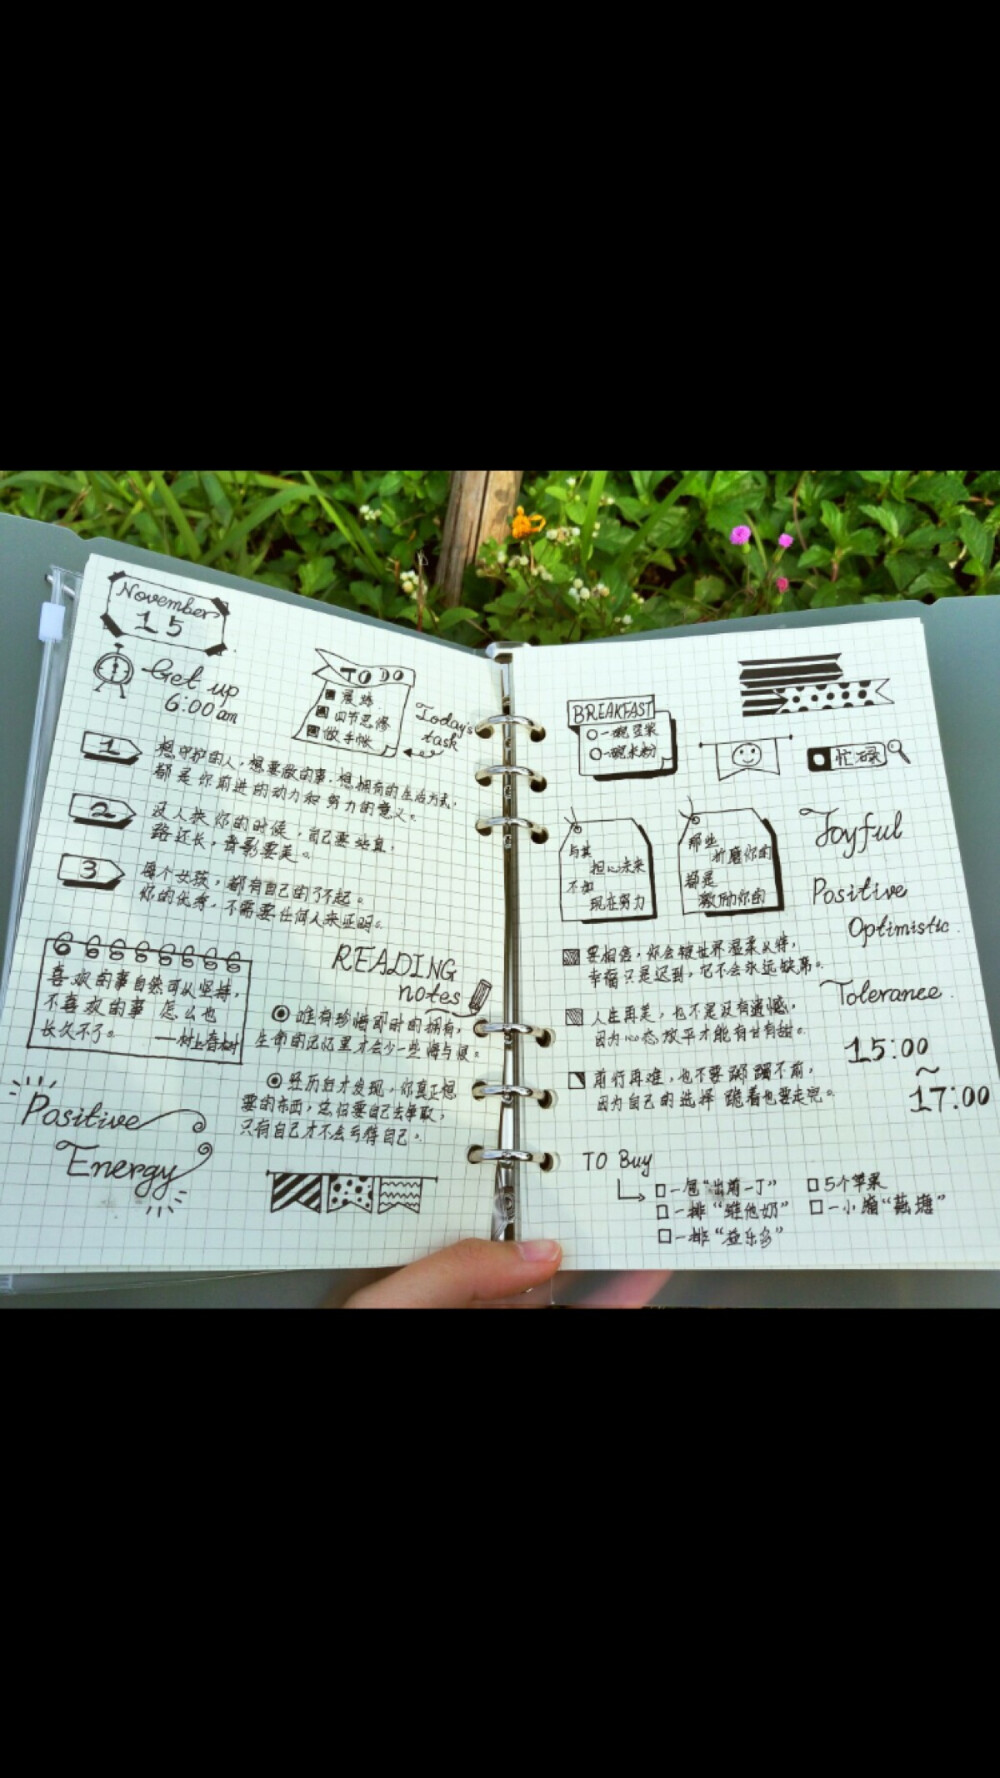 November
15
Get up
6:00 am
TO DO
晨跑
四节思修
做手帐
Today's
task
1
想守护的人,想要做的事,想拥有的生活方式,
都是你前进的动力和努力的意义。
2
没人扶你的时候,自己要站直,
路还长,背影要美。
3
每个女孩,都有自己的了不起。
你的优秀,不需要任何人来证明。
喜欢的事自然可以坚持,
不喜欢的事 怎么也
长久不了。
——村上春树
READING
notes
唯有珍惜即时的拥有,
生命的记忆里才会少一些悔与恨。
经历后才发现,你真正想
要的东西,总归要自己去争取,
只有自己才不会亏待自己。
Positive
Energy
BREAKFAST
一碗豆浆
一碗米粉
忙碌
与其
担心未来
不如
现在努力
那些
折磨你的
都是
激励你的
Joyful
Positive
Optimistic.
Tolerance.
15:00
~
17:00
要相信,你会被世界温柔以待,
幸福只是迟到,它不会永远缺席。
人生再美,也不是没有遗憾,
因为心态放平才能有甘有甜。
前行再难,也不要踯躅不前,
因为自己的选择 跪着也要走完。
TO Buy
一包“出前一丁”
一排“维他奶”
一排“益乐多”
5个苹果
一小箱“菰塘”